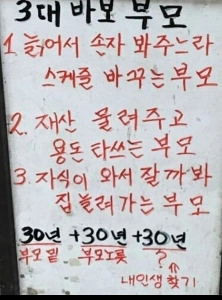 3대 바보 부모
1. 늙어서 손자 봐주느라
스케줄 바꾸는 부모
2. 재산 물려주고
용돈 타쓰는 부모
3. 자식이 와서 잘까봐
집 늘려가는 부모
30년 +30년+30년
부모밑 부모노릇 ?
⇑
내인생 찾기